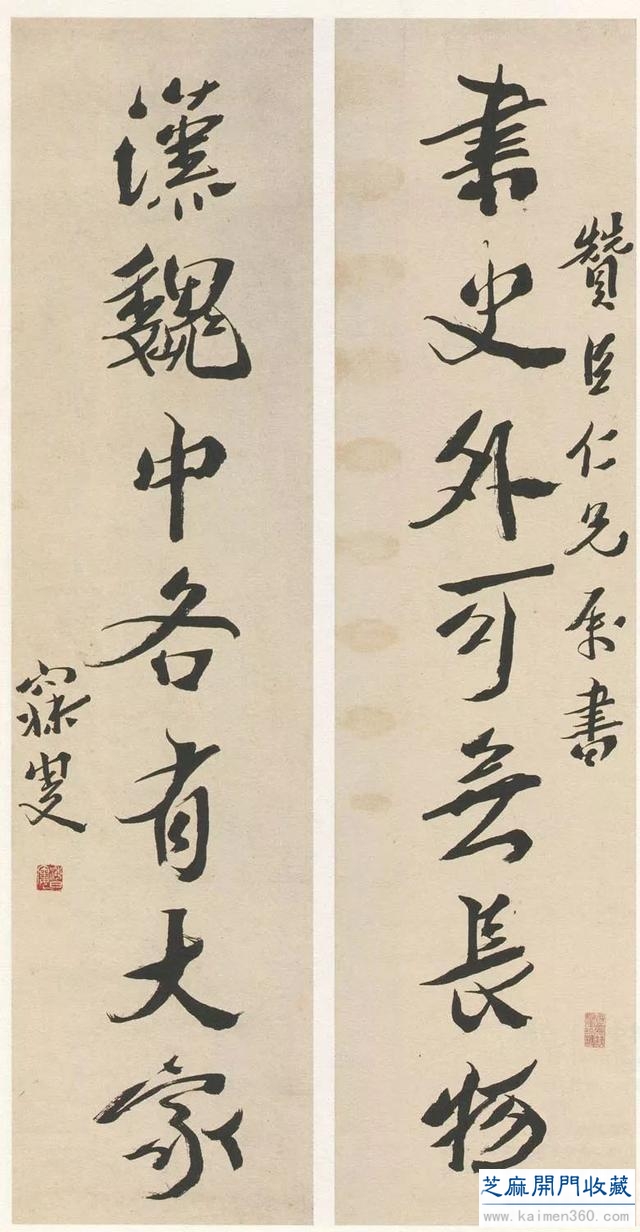 贊臣仁兄属書
書史外可無長物
漢魏中各有大家
寐叟
芝麻開門收藏
www.kaimen360.com